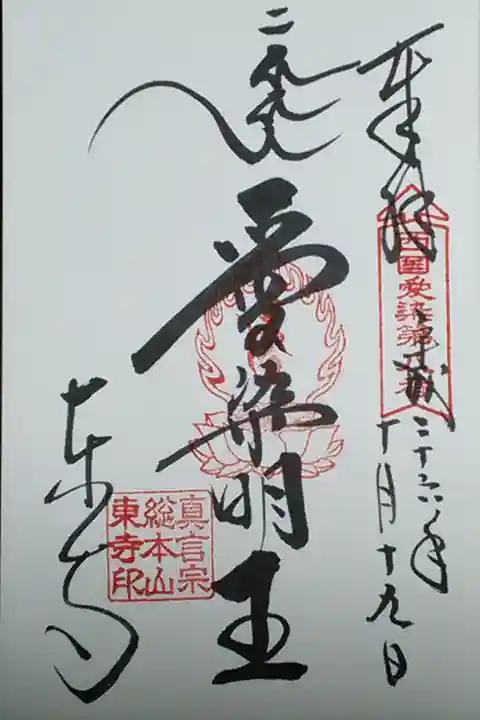 奉拝
西国愛染第番
平成二十六年
十月十九日
愛染明王
真言宗
総本山
東寺印
東寺